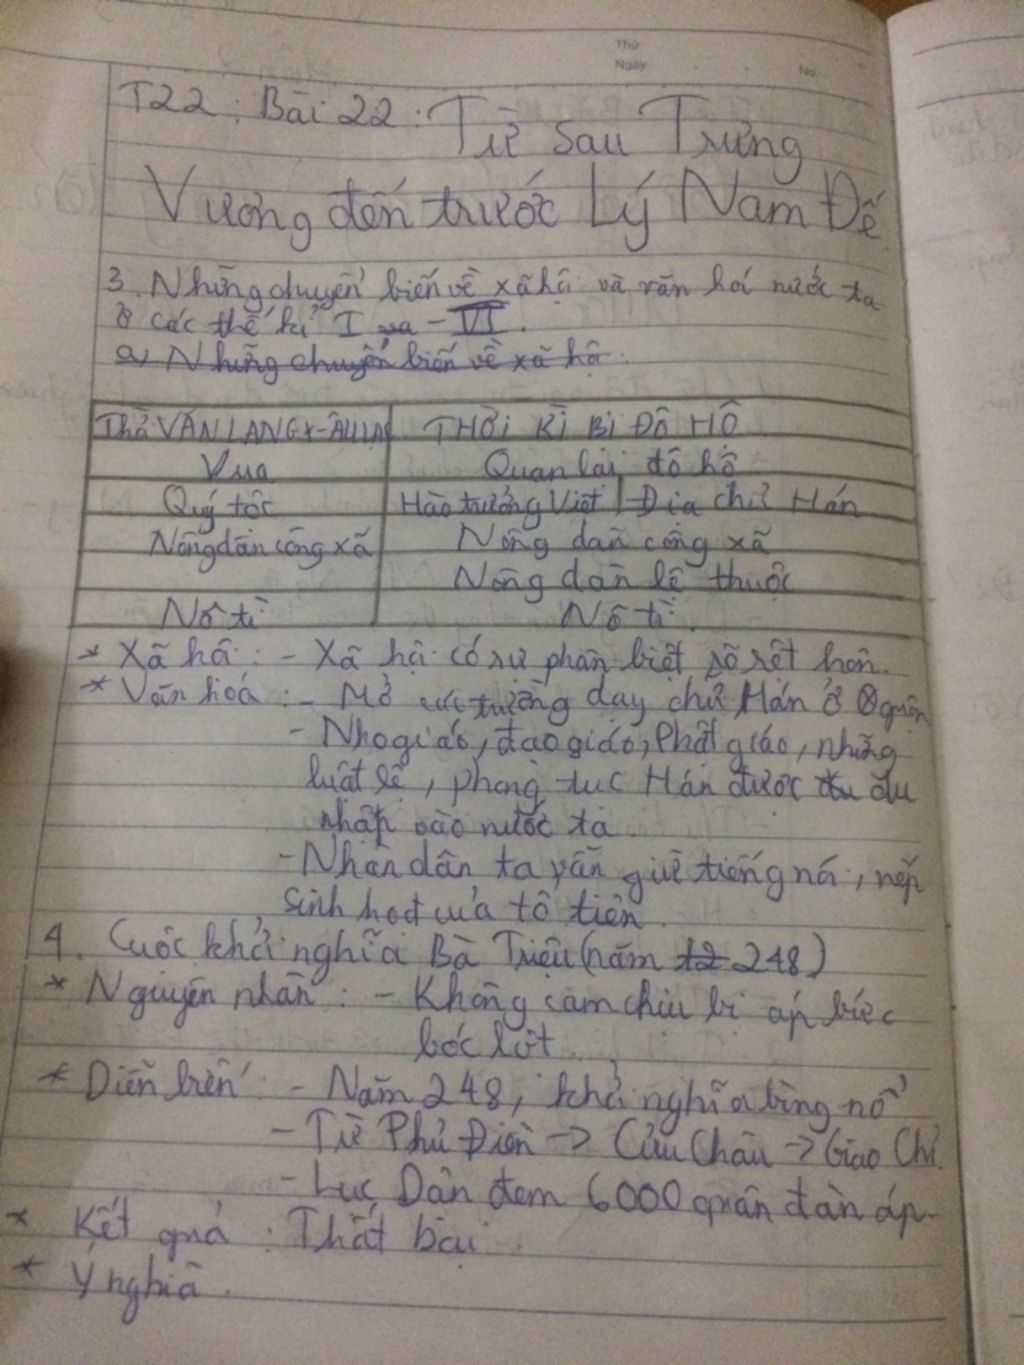 Thứ
Ngày No.
T22: Bài 22: Từ sau Trưng
Vương đến trước Lý Nam Đế
3. Những chuyển biến về xã hội và văn hoá nước ta
ở các thế kỉ I - VI.
a, Những chuyển biến về xã hội.
VĂN LANG - ÂU LẠC THỜI KÌ BỊ ĐÔ HỘ
Vua Quan lại đô hộ
Quý tộc Hào trưởng Việt Địa chủ Hán
Nông dân công xã Nông dân công xã
Nông dân lệ thuộc
Nô tì Nô tì
* Xã hội: - Xã hội có sự phân biệt rõ rệt hơn.
* Văn hoá: - Mở trường dạy chữ Hán ở quận
- Nho giáo, đạo giáo, Phật giáo, những
luật lệ, phong tục Hán được du
nhập vào nước ta
- Nhân dân ta vẫn giữ tiếng nói, nếp
sinh hoạt của tổ tiên.
4. Cuộc khởi nghĩa Bà Triệu (năm 248)
* Nguyên nhân: - Không cam chịu bị áp bức
bóc lột.
* Diễn biến: - Năm 248, khởi nghĩa bùng nổ
- Từ Phú Điền -> Cửu Chân -> Giao Chỉ.
- Lục Dận đem 6000 quân đàn áp.
* Kết quả: Thất bại.
* Ý nghĩa.